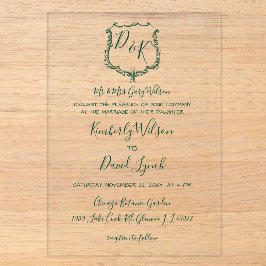 D & K
Mr. & Mrs. Gary Wilson
REQUEST THE PLEASURE OF YOUR COMPANY
AT THE MARRIAGE OF HER DAUGHTER
Kimberly Wilson
TO
David Lynch
SATURDAY, NOVEMBER 13, 20XX AT 4 PM
Chicago Botanic Garden
Lake Cook Rd, Glencoe, IL
reception to follow